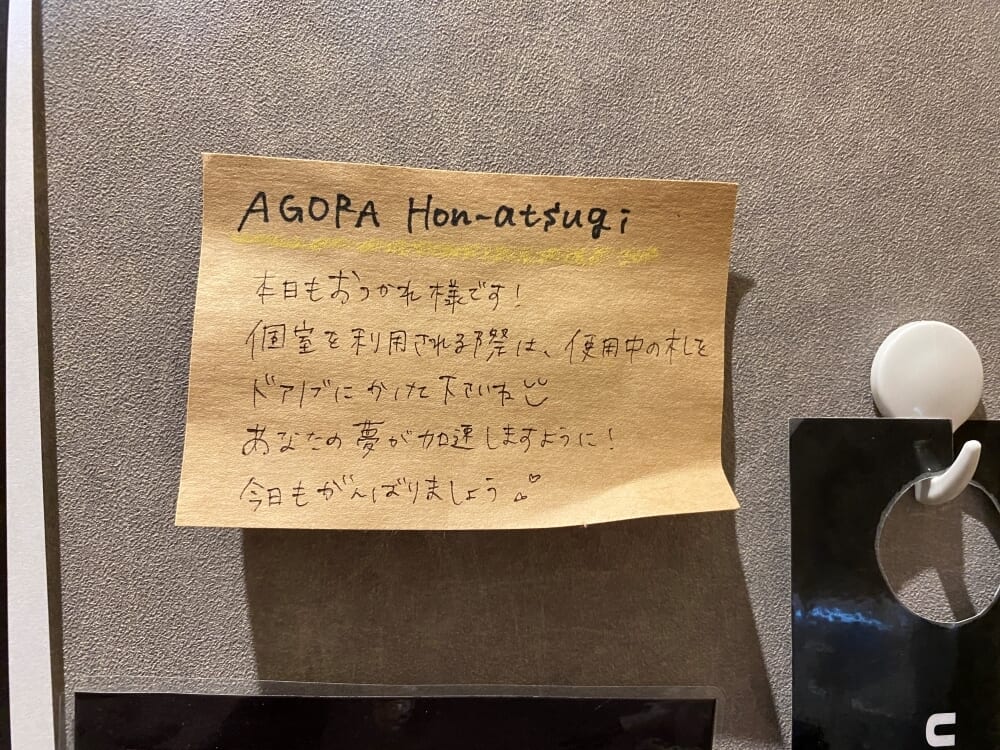 AGORA Hon-atsugi
本日もおつかれ様です!
個室を利用される際は、使用中の札を
ドアノブにかけて下さいね
あなたの夢が加速しますように!
今日もがんばりましょう♪